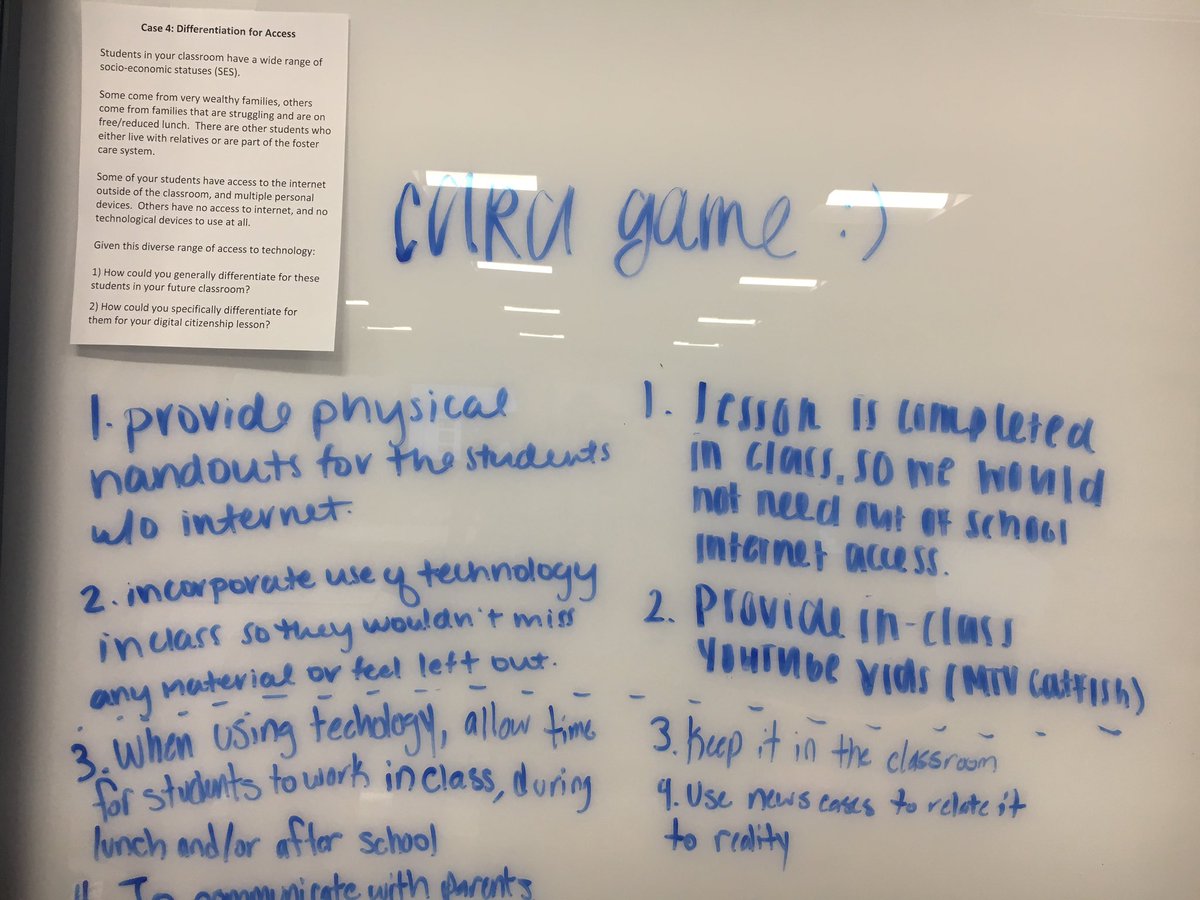 Case 4: Differentiation for Access
Students in your classroom have a wide range of
socio-economic statuses (SES).
Some come from very wealthy families, others
come from families that are struggling and are on
free/reduced lunch. There are other students who
either live with relatives or are part of the foster
care system.
Some of your students have access to the internet
outside of the classroom, and multiple personal
devices. Others have no access to internet, and no
technological devices to use at all.
Given this diverse range of access to technology:
1) How could you generally differentiate for these
students in your future classroom?
2) How could you specifically differentiate for
them for your digital citizenship lesson?
game :)
1. provide physical
handouts for the students
w/o internet.
2. incorporate use of technology
in class so they wouldn't miss
any material or feel left out.
3. When using techology, allow time
for students to work in class, during
lunch and/or after school
4. To communicate with parents
1. lesson is completed
in class, so we would
not need out of school
internet access.
2. Provide in-class
YouTube vids (MTV Catfish)
3. Keep it in the classroom
4. Use news cases to relate it
to reality